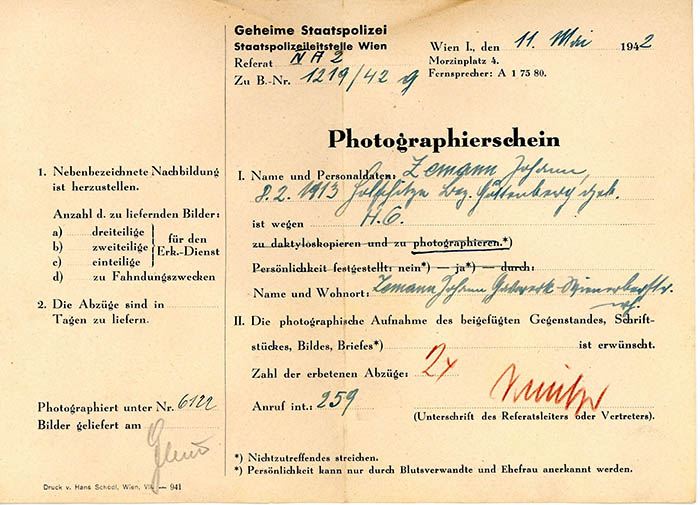 Geheime Staatspolizei
Staatspolizeileitstelle Wien
Referat N A 2
Zu B.-Nr. 1219/42 g
Wien I., den 11. Mai 1942
Morzinplatz 4.
Fernsprecher: A 1 75 80.
Photographierschein
1. Nebenbezeichnete Nachbildung
ist herzustellen.
Anzahl d. zu liefernden Bilder:
a) dreiteilige
b) zweiteilige
c) einteilige
für den
Erk.-Dienst
d) zu Fahndungszwecken
2. Die Abzüge sind in
Tagen zu liefern.
Photographiert unter Nr. 6122
Bilder geliefert am
I. Name und Personaldaten: Zemann Johann,
8.2.1913 Bez.
ist wegen
zu daktyloskopieren und zu photographieren.*)
Persönlichkeit festgestellt: nein*) — ja*) — durch:
Name und Wohnort: Zemann Johann
II. Die photographische Aufnahme des beigefügten Gegenstandes, Schrift-
stückes, Bildes, Briefes*) ist erwünscht.
Zahl der erbetenen Abzüge: 2x
Anruf int.: 259
(Unterschrift des Referatsleiters oder Vertreters).
*) Nichtzutreffendes streichen.
*) Persönlichkeit kann nur durch Blutsverwandte und Ehefrau anerkannt werden.
Druck v. Hans Schödl, Wien, VII. — 941